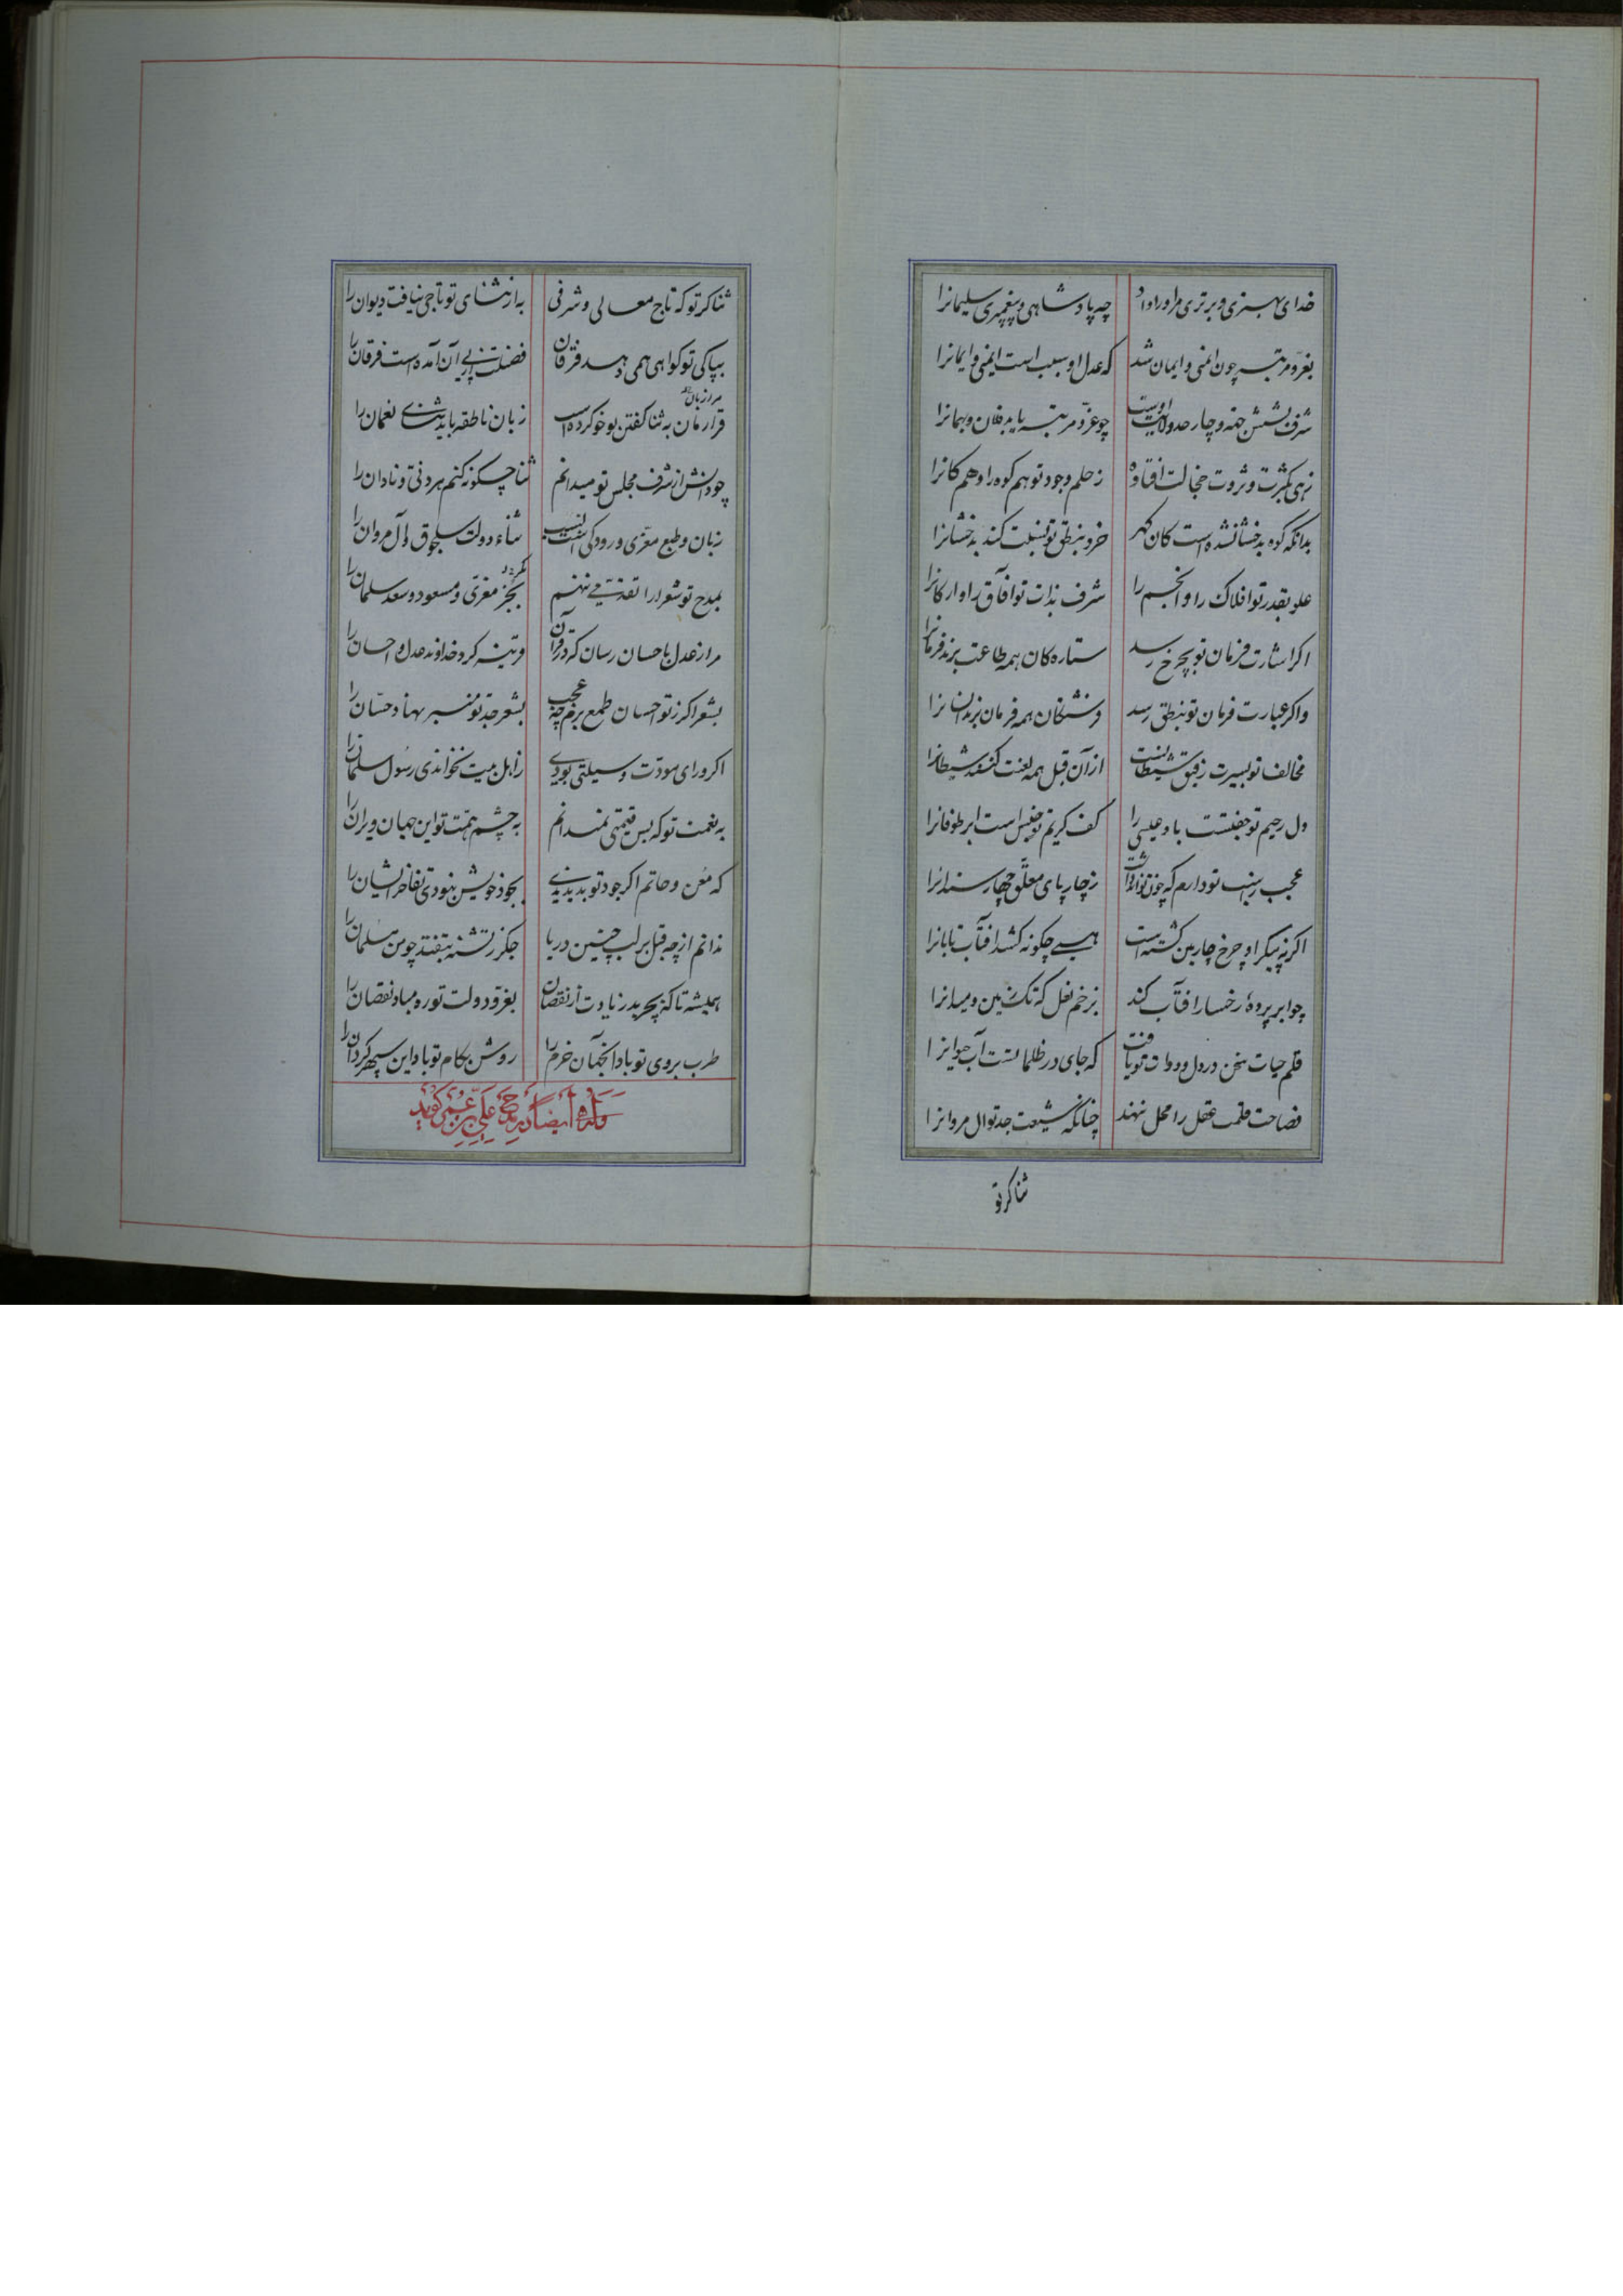 خدای بهتری و برتری مر او را داد چه پادشاهی و پیغمبری سلیمانرا
بعز و مرتبه چون ایمنی و ایمان شد که عدل او سبب است ایمنی و ایمانرا
شرف بشش جهة و چار حد ولایت اوست چو عز و مرتبه باید فلان و بهمانرا
زهی بکثرت و ثروت خجالت افتاده ز حلم وجود تو هم کوه را و هم کانرا
بدانکه کوه بدخشان شده است کان گهر خرد بنطق تو نسبت کند بدخشانرا
علو بقدر تو افلاک را و انجم را شرف بذات تو آفاق را و ارکانرا
اگر اشارت فرمان تو بچرخ رسد ستارگان همه طاعت برند فرمانرا
و اگر عبارت فرمان تو بنطق رسد فرشتگان همه فرمان برند انسانرا
مخالف تو بسیرت رفیق شیطانست از آن قبل همه لعنت کنند شیطانرا
دل رحیم تو جفتست باد عیسی را کف کریم تو جنس است ابر طوفانرا
عجب ز اسب تو دارم که چون تواند داشت ز چار پای معلق چهار سندانرا
اگر نه پیکر او چرخ چارمین گشته است همی چگونه کشد آفتاب تابانرا
چو ابر پرده رخسار آفتاب کند بزخم نعل که تک زمین و میدانرا
قلم حیات سخن در دل دوات تو یافت که جای در ظلماتست آب حیوانرا
فصاحت قلمت عقل را محل ننهد چنانکه شیعت جد تو آل مروانرا
ثناگر تو
ثناگر تو که تاج معالی و شرفی به از ثنای تو تاجی نیافت دیوان را
بپاکی تو گواهی همی دهد فرقان فضیلت از پی آن آمده است فرقان را
قرارمان به ثنا گفتن تو خو کرده است زبان ناطقه باید ثنای نعمان را
چو دانش از شرف مجلس تو میدانم ثنا چگونه کنم هر دنی و نادان را
زبان و طبع معزی و رودکی است ثناء دولت سلجوق و آل مروان را
بمدح تو شعرا را تقدمی ننهم بجز معزی و مسعود و سعد سلمان را
مرا ز عدل باحسان رسان که در قرآن قرینه کرد خداوند عدل و احسان را
بشعر اگر ز تو احسان طمع برم چه عجب بشعر جد تو منبر نهاد حسان را
اگر ورای مودت وسیلتی بودی ز اهل بیت نخواندی رسول سلمان را
به نعمت تو که بس قیمتی نمیدانم به چشم همت تو این جهان ویران را
که معن و حاتم اگر جود تو بدیدندی بجود خویش نبودی تفاخر ایشان را
ندانم از چه قبل بر لب چنین دریا جگر ز تشنه بتفتد چو من سلمان را
همیشه تا که پدید بدر زیادت از نقصان بعز و دولت تو ره مباد نقصان را
طرب بروی تو باد آنجهان خرم را روش بکام تو باد این سپهر گردان را
وله ایضا در مدح علی بن عمر گوید